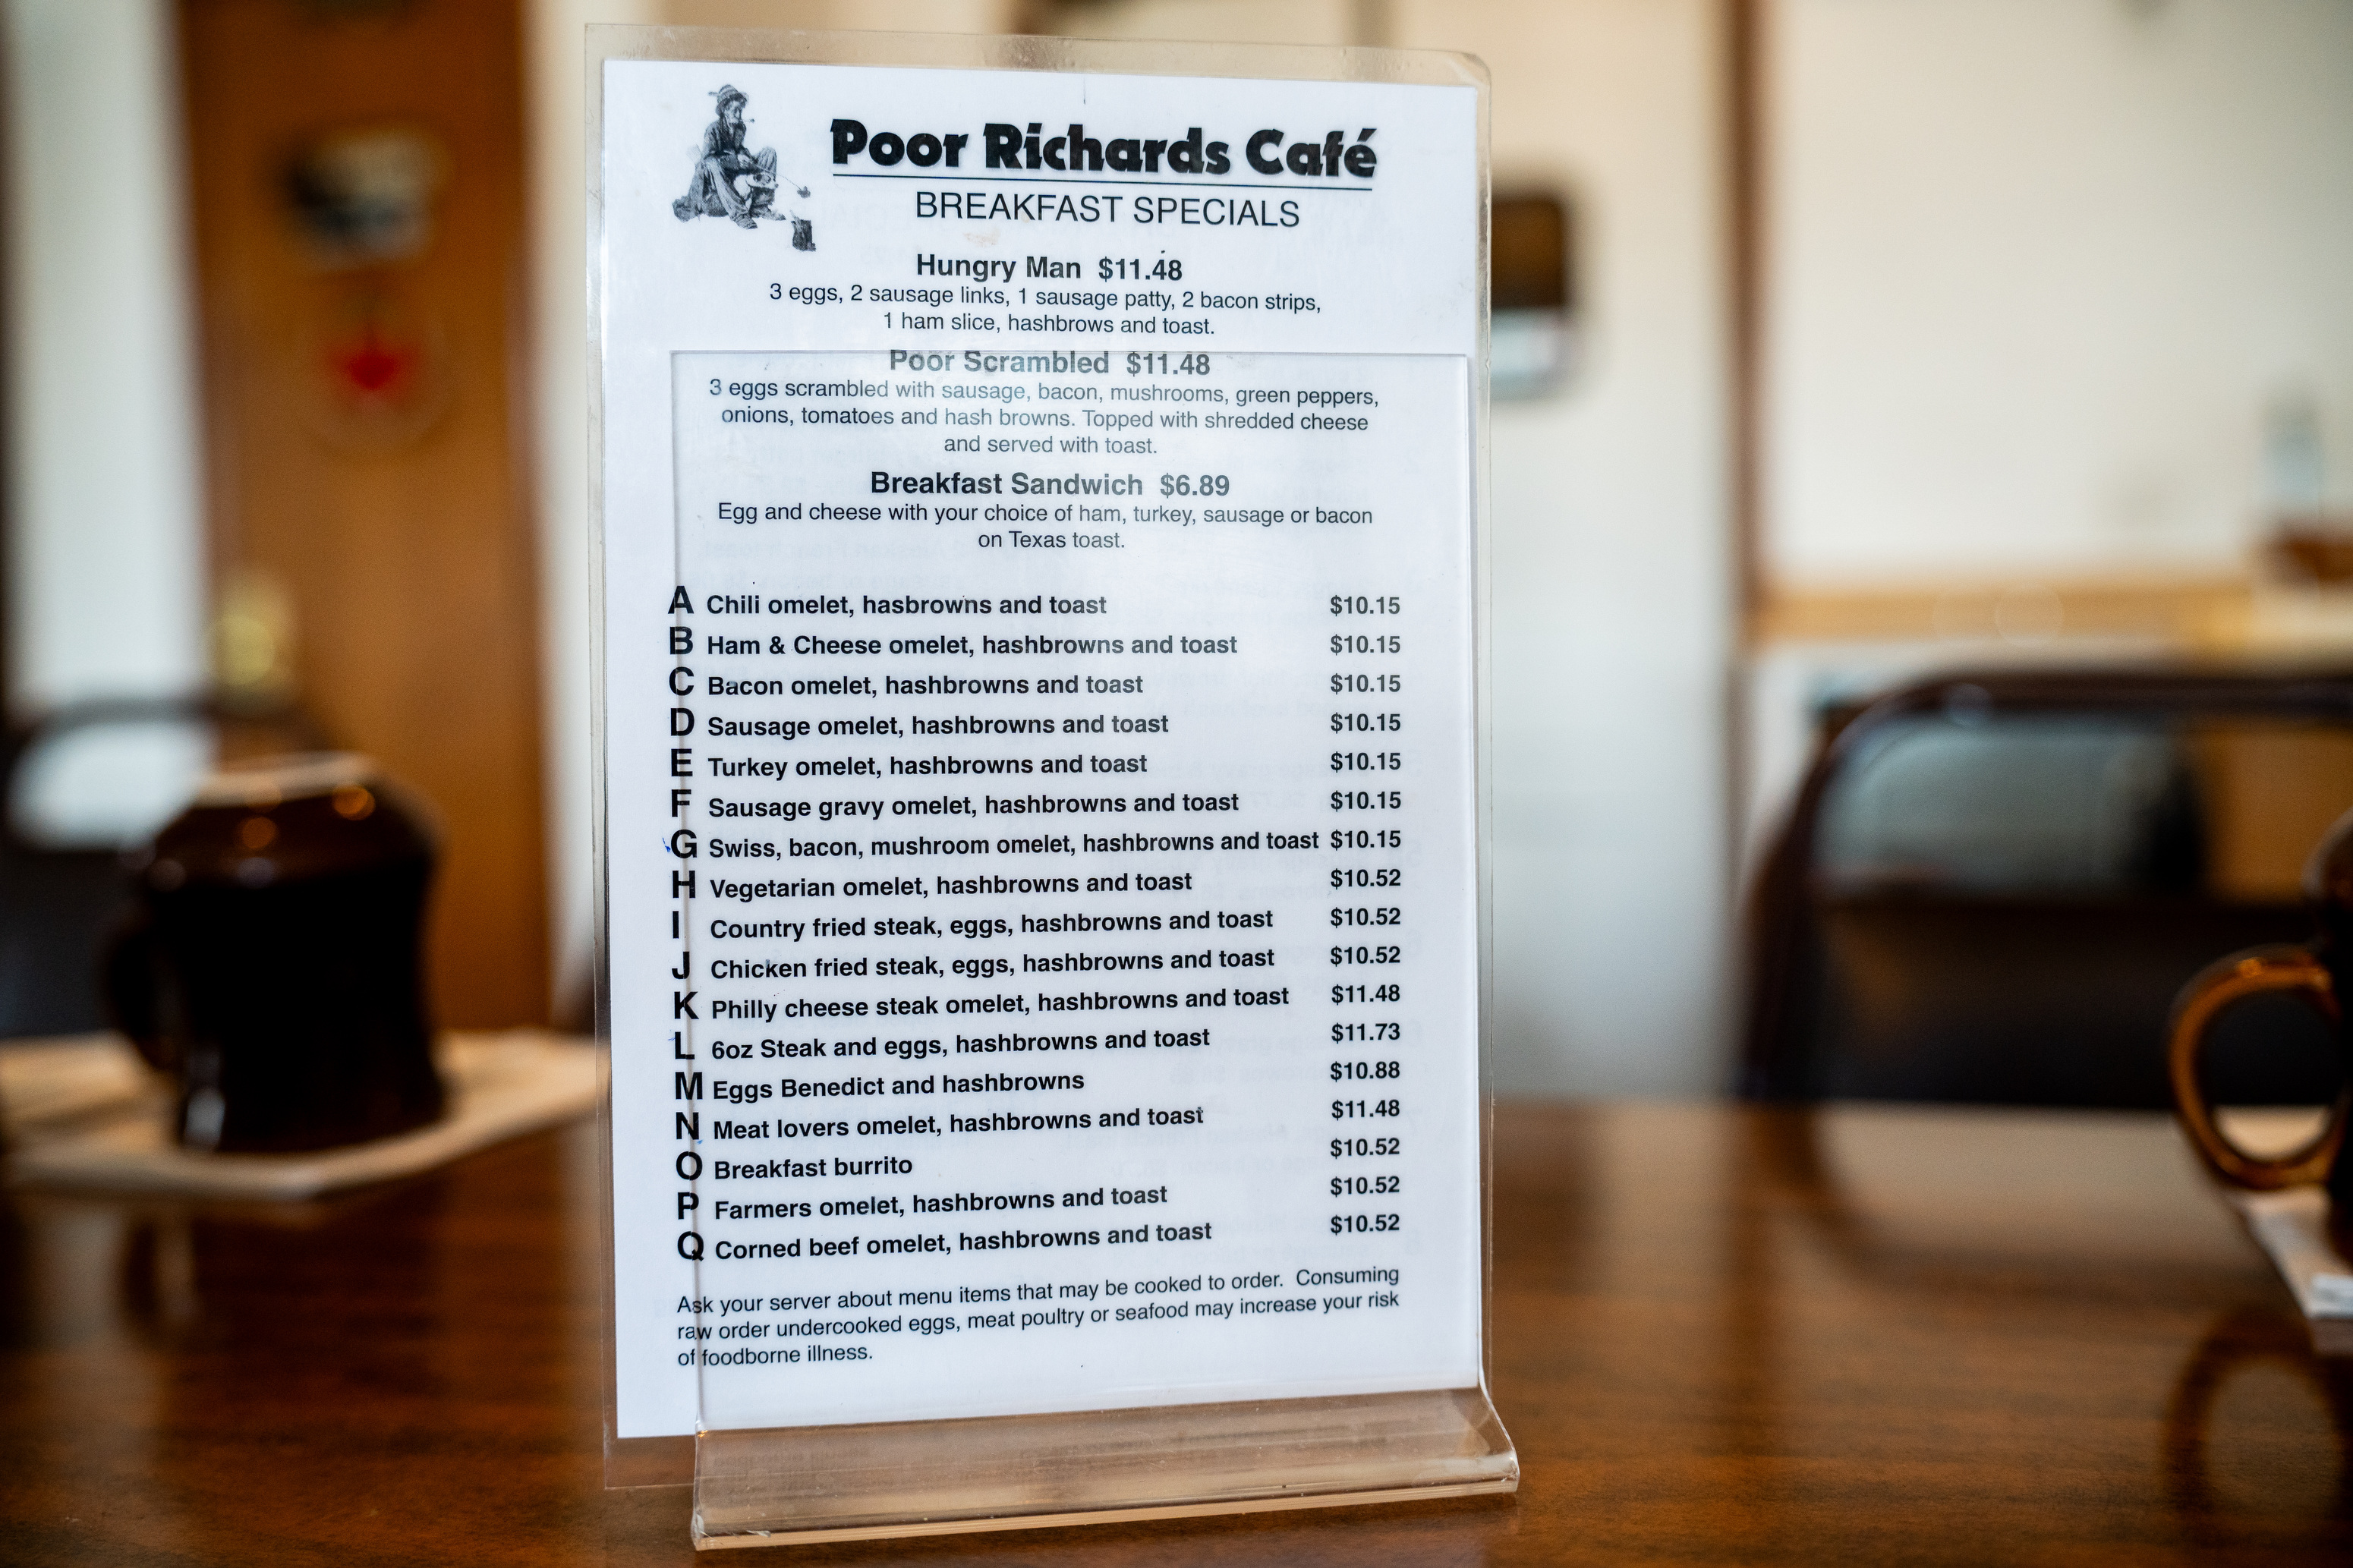 Poor Richards Café
BREAKFAST SPECIALS
Hungry Man $11.48
3 eggs, 2 sausage links, 1 sausage patty, 2 bacon strips,
1 ham slice, hashbrows and toast.
Poor Scrambled $11.48
3 eggs scrambled with sausage, bacon, mushrooms, green peppers,
onions, tomatoes and hash browns. Topped with shredded cheese
and served with toast.
Breakfast Sandwich $6.89
Egg and cheese with your choice of ham, turkey, sausage or bacon
on Texas toast.
A Chili omelet, hasbrowns and toast $10.15
B Ham & Cheese omelet, hashbrowns and toast $10.15
C Bacon omelet, hashbrowns and toast $10.15
D Sausage omelet, hashbrowns and toast $10.15
E Turkey omelet, hashbrowns and toast $10.15
F Sausage gravy omelet, hashbrowns and toast $10.15
G Swiss, bacon, mushroom omelet, hashbrowns and toast $10.15
H Vegetarian omelet, hashbrowns and toast $10.52
I Country fried steak, eggs, hashbrowns and toast $10.52
J Chicken fried steak, eggs, hashbrowns and toast $10.52
K Philly cheese steak omelet, hashbrowns and toast $11.48
L 6oz Steak and eggs, hashbrowns and toast $11.73
M Eggs Benedict and hashbrowns $10.88
N Meat lovers omelet, hashbrowns and toast $11.48
O Breakfast burrito $10.52
P Farmers omelet, hashbrowns and toast $10.52
Q Corned beef omelet, hashbrowns and toast $10.52
Ask your server about menu items that may be cooked to order. Consuming
raw order undercooked eggs, meat poultry or seafood may increase your risk
of foodborne illness.